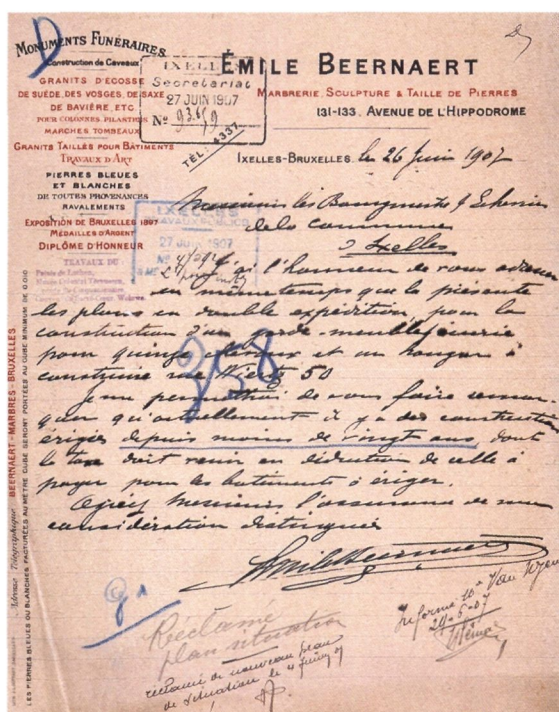 MONUMENTS FUNÉRAIRES
Construction de Caveaux
GRANITS D'ÉCOSSE
DE SUÈDE, DES VOSGES, DE SAXE
DE BAVIÈRE, ETC
POUR COLONNES, PILASTRES
MARCHES TOMBEAUX
GRANITS TAILLÉS POUR BÂTIMENTS
TRAVAUX D'ART
PIERRES BLEUES
ET BLANCHES
DE TOUTES PROVENANCES
RAVALEMENTS
EXPOSITION DE BRUXELLES 1897
MÉDAILLES D'ARGENT
DIPLÔME D'HONNEUR
TRAVAUX DU :
IXELLES
Secrétariat
27 JUIN 1907
No
TÉL: 4337
ÉMILE BEERNAERT
MARBRERIE, SCULPTURE & TAILLE DE PIERRES
131-133, AVENUE DE L'HIPPODROME
IXELLES-BRUXELLES, le 26 Juin 1907
IXELLES
TRAVAUX PUBLICS
27 JUIN 1907
Messieurs les Bourgmestre & Echevins
de la commune
d'Ixelles
J'ai l'honneur de vous adresser
en même temps que la présente
les plans en double expédition, pour la
construction d'un garde meuble, écurie
pour quinze chevaux et un hangar à
construire rue 50
Je me permettrai de vous faire remar-
quer qu'actuellement il y a des constructions
érigées depuis moins de vingt ans, dont
la taxe doit venir en déduction de celle à
payer pour les bâtiments à ériger.
Agréez Messieurs l'assurance de ma
considération distinguée
Emile Beernaert
258
Réclamé
plan situation
réclamé de nouveau plan
de situation le 4
Adresse Télégraphique BEERNAERT-MARBRES-BRUXELLES
LES PIERRES BLEUES OU BLANCHES FACTURÉES AU MÈTRE CUBE SERONT PORTÉES AU CUBE MINIMUM DE 0.010